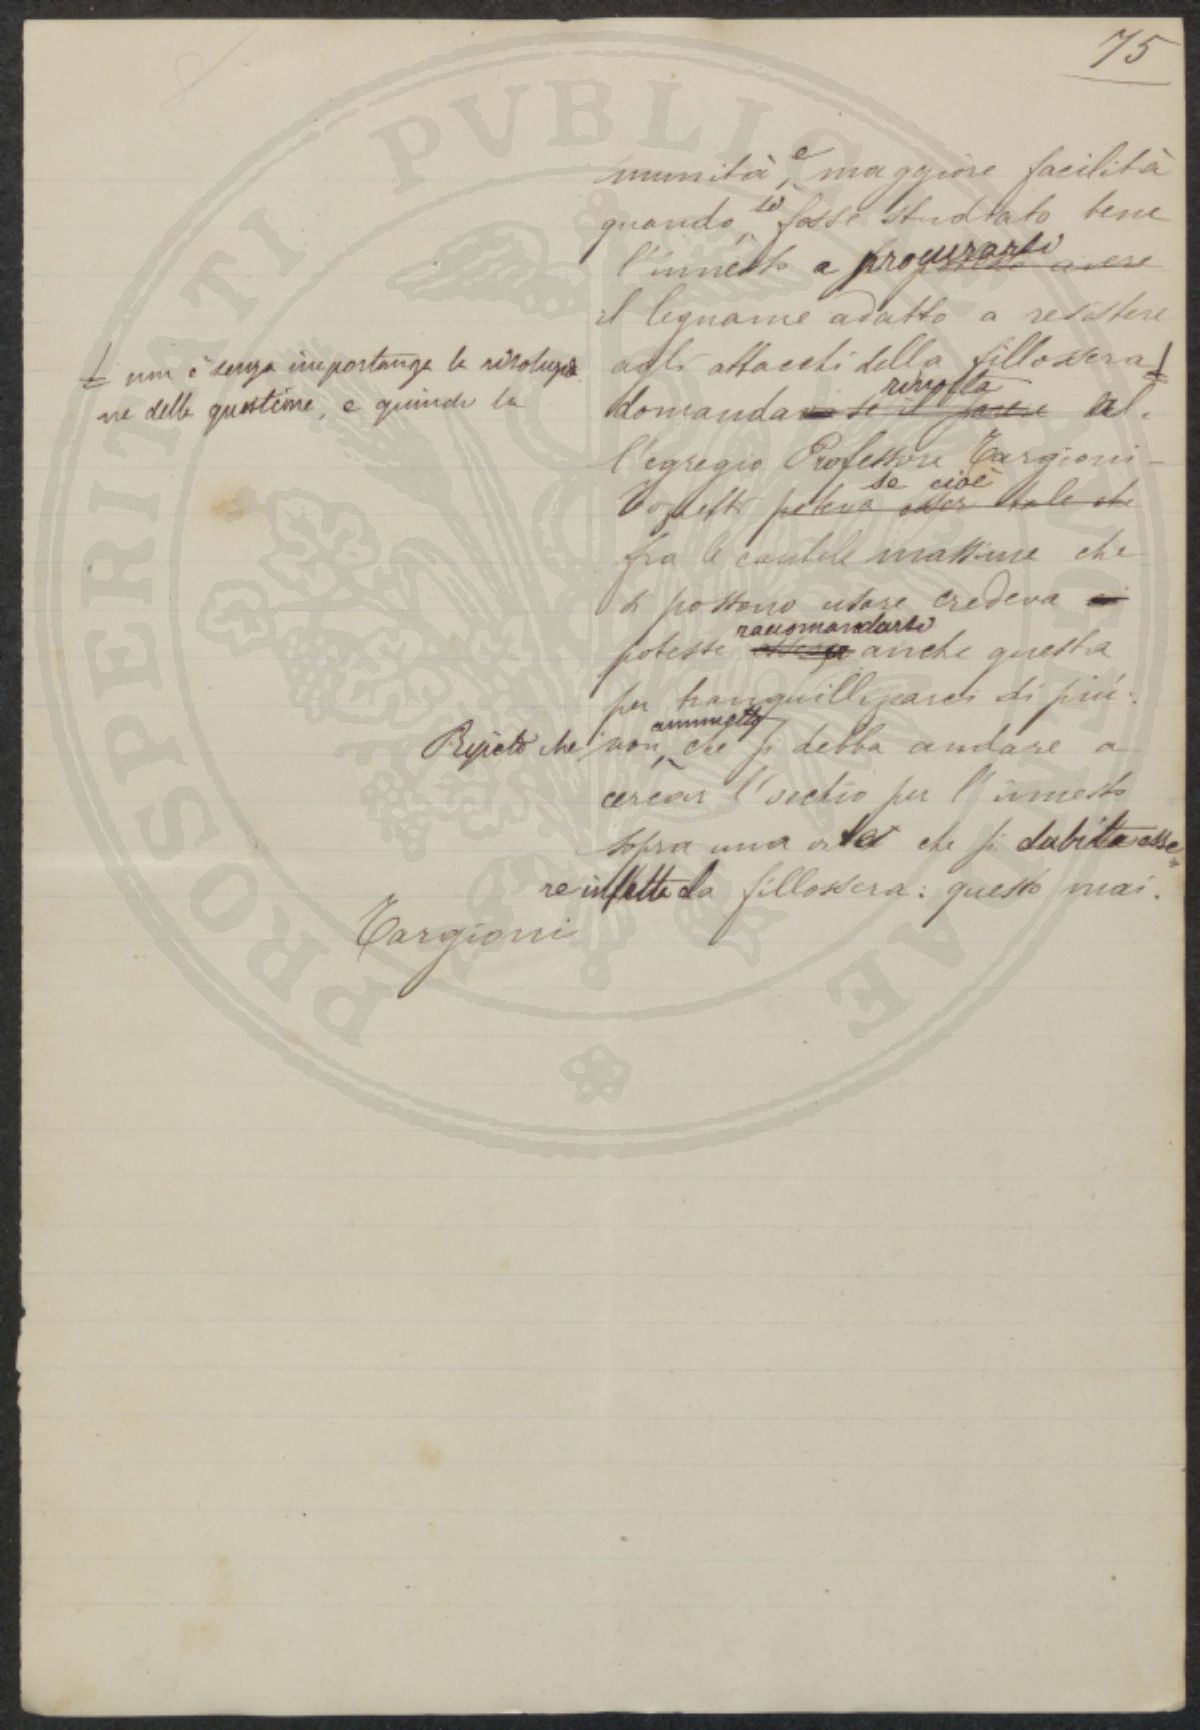 75
munità, e maggiore facilità
quando, se fosse studiato bene
l'innesto a procurarsi avere
il legname adatto a resistere
agli attacchi della fillossera
non è senza importanza la risoluzio
ne della questione, e quindi la
domanda se il parere rivolta al-
l'egregio Professore Targioni-
Tozzetti poteva esser tale che se cioè
fra le cautele massime che
si possono usare credeva
potesse raccomandarsi anche questa
per tranquillizzarci di più.
Ripeto che non ammetto che si debba andare a
cercar l'occhio per l'innesto
sopra una vite che si dubita esse-
re infetta da fillossera: questo mai.
Targioni
PROSPERITATI PUBLICAE